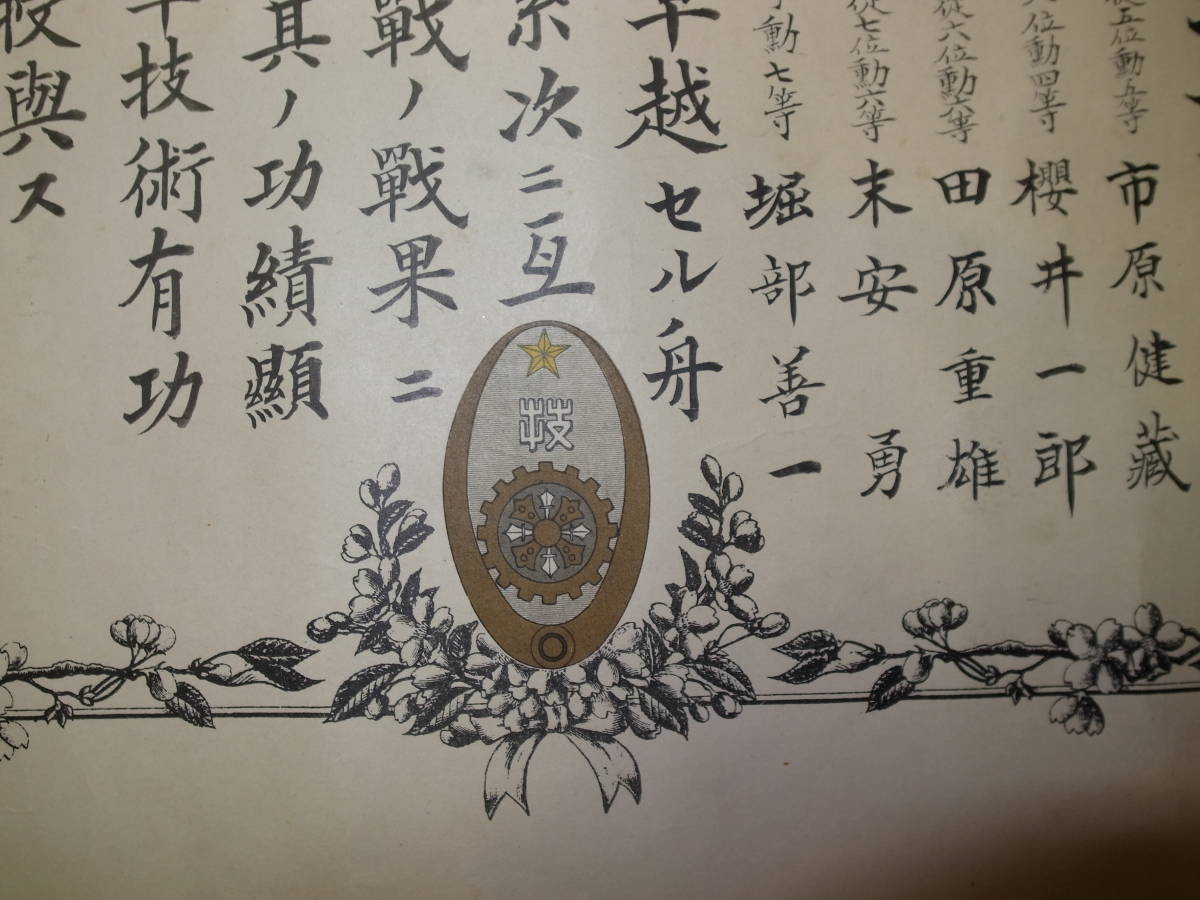 五位勳五等 市原健藏
位勳四等 櫻井一郎
從六位勳六等 田原重雄
從七位勳六等 末安勇
勳七等 堀部善一
卓越セル舟
系次ニ亙
戰ノ戰果ニ
其ノ功績顯
技術有功
授與ス
技